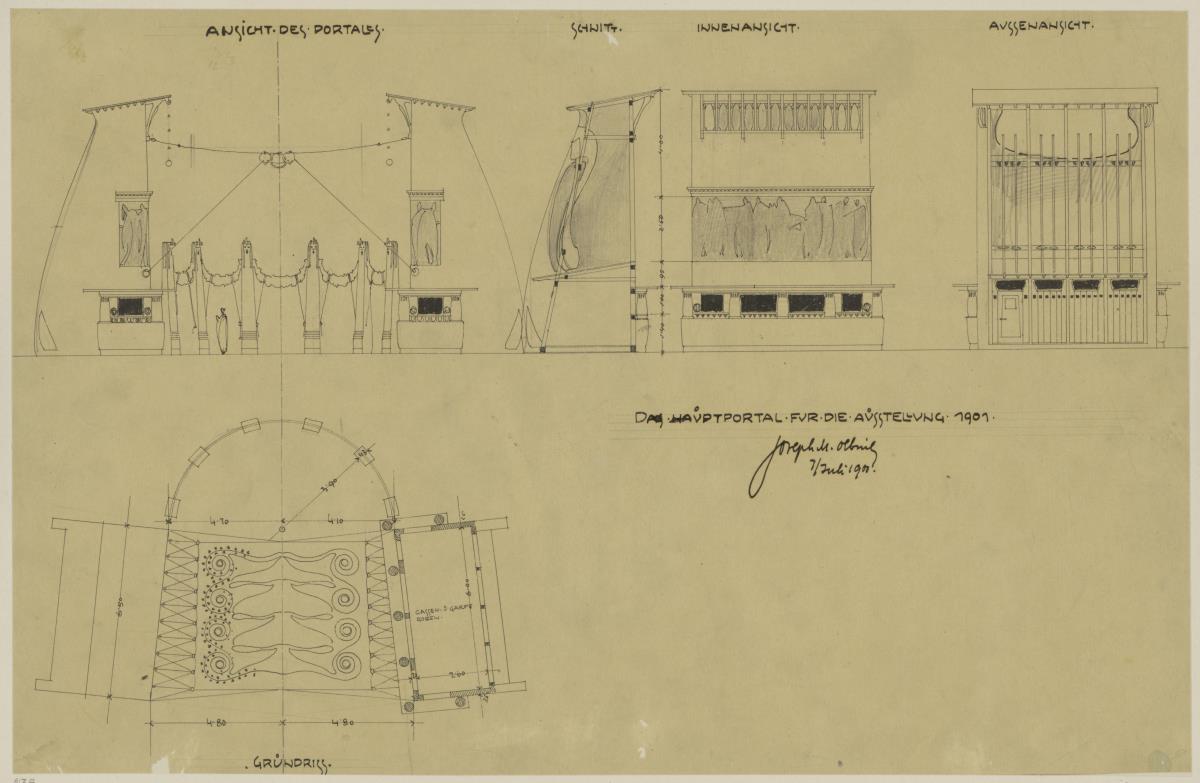 ANSICHT·DES·PORTALES·
SCHNITT.
INNENANSICHT.
AUSSENANSICHT.
4.00
2.50
DAS·HAUPTPORTAL·FUR·DIE·AUSSTELLUNG·1901·
Joseph M. Olbrich
7/Juli 1901.
3.90
4.10
6.50
6.00
CASSEN·
2.60
4.80
4.80
.GRUNDRISS.